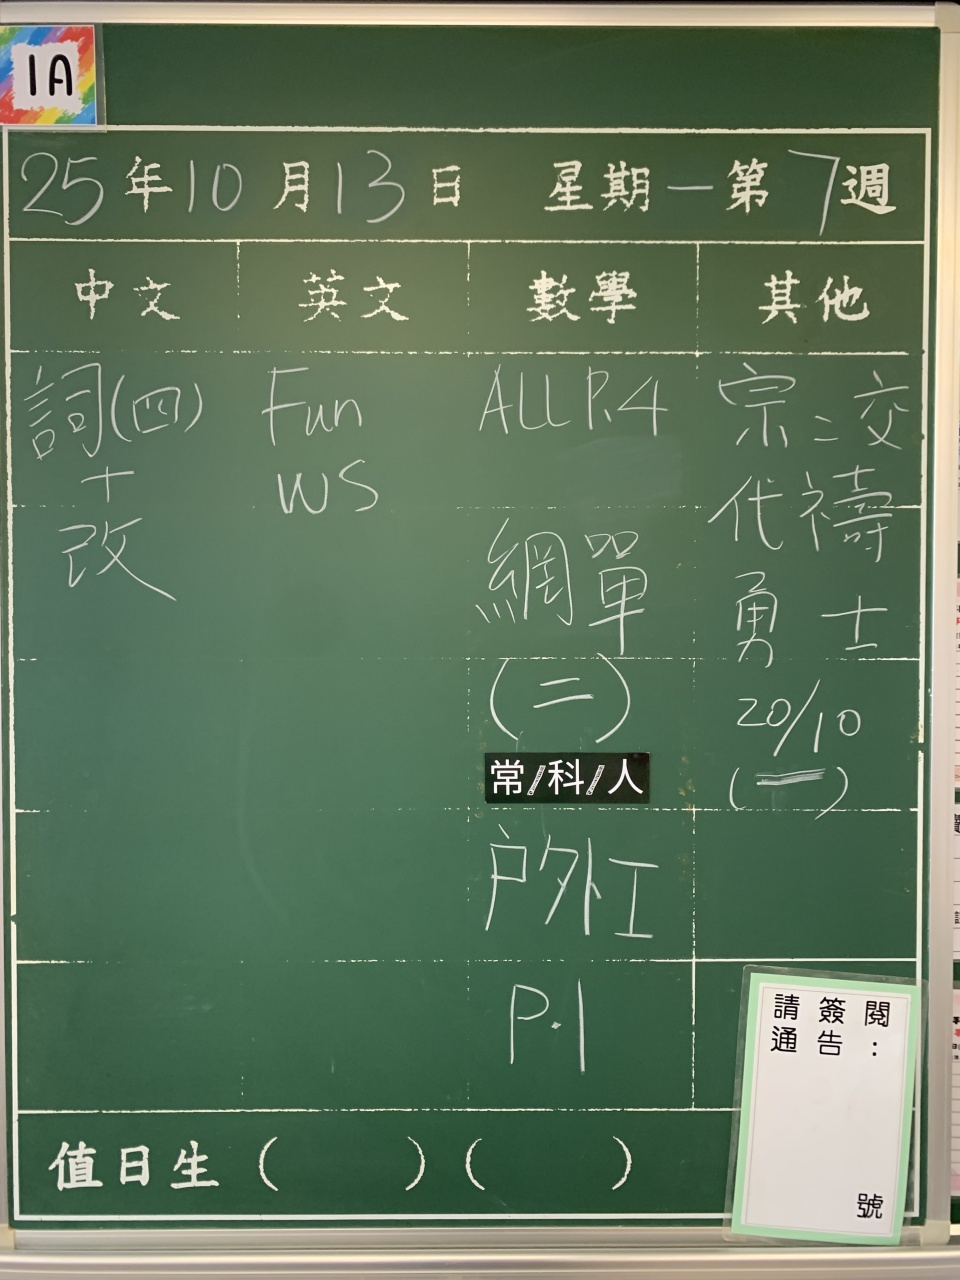 1A
25年10月13日 星期一第7週
中文 英文 數學 其他
詞(四)
+
改
Fun
WS
ALL P.4
網單
(二)
常/科/人
户外工
P.1
宗:交
代禱
勇士
20/10
(一)
請簽閱
通告:
號
值日生( )( )